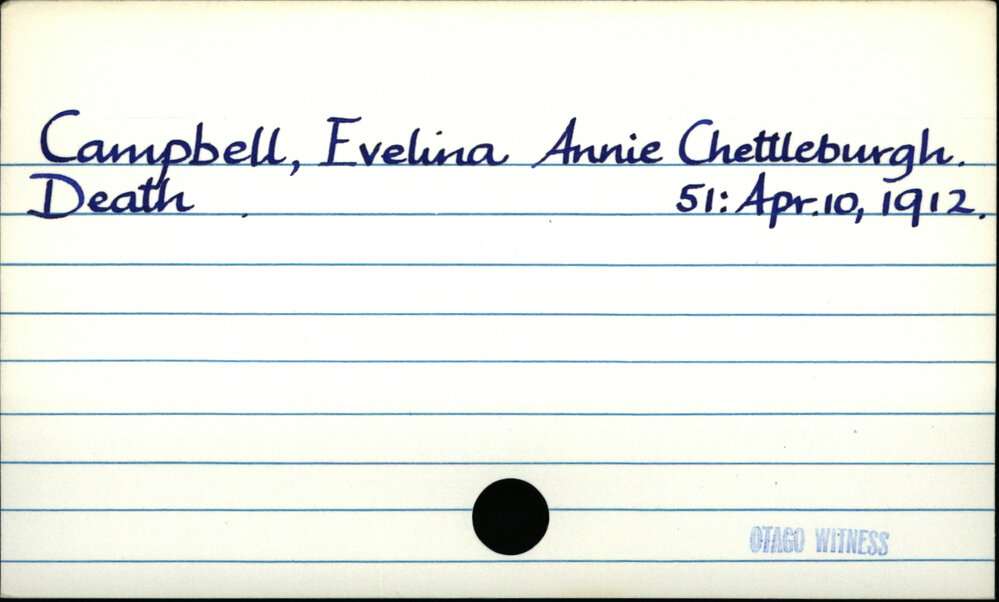 Campbell, Evelina Annie Chettleburgh.
Death . 51: Apr. 10, 1912.
OTAGO WITNESS